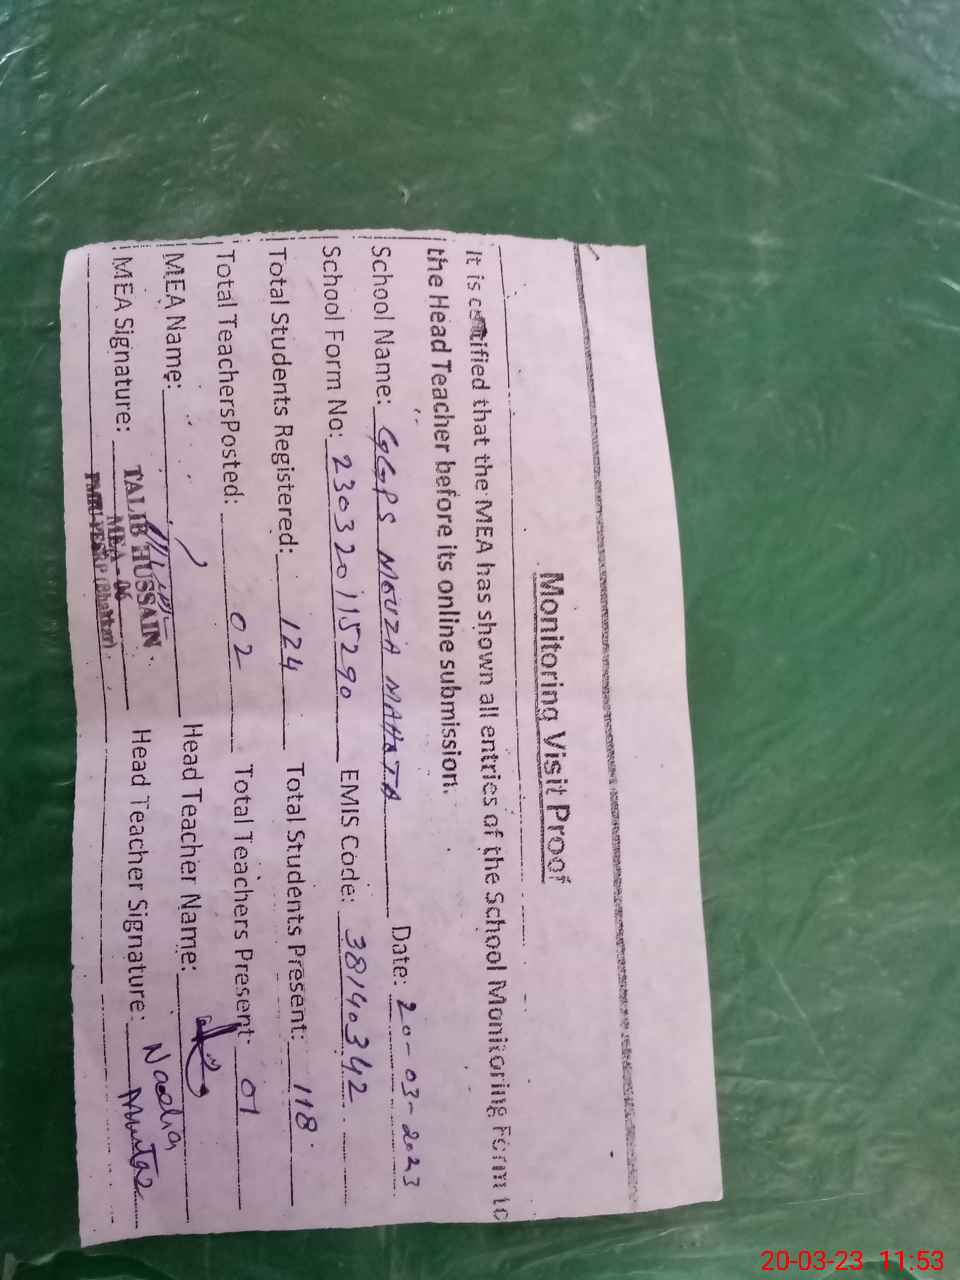 Monitoring Visit Proof
It is certified that the MEA has shown all entries of the School Monitoring Form to
the Head Teacher before its online submission.
School Name: GGPS MOUZA MAHOTA Date: 20-03-2023
School Form No: 230320115290 EMIS Code: 38140342
Total Students Registered: 124 Total Students Present: 118
Total TeachersPosted: 02 Total Teachers Present: 01
MEA Name: Head Teacher Name:
MEA Signature: TALIB HUSSAIN Head Teacher Signature: Nadia Mumtaz
MEA - 06
(Bhakkar)
20-03-23 11:53